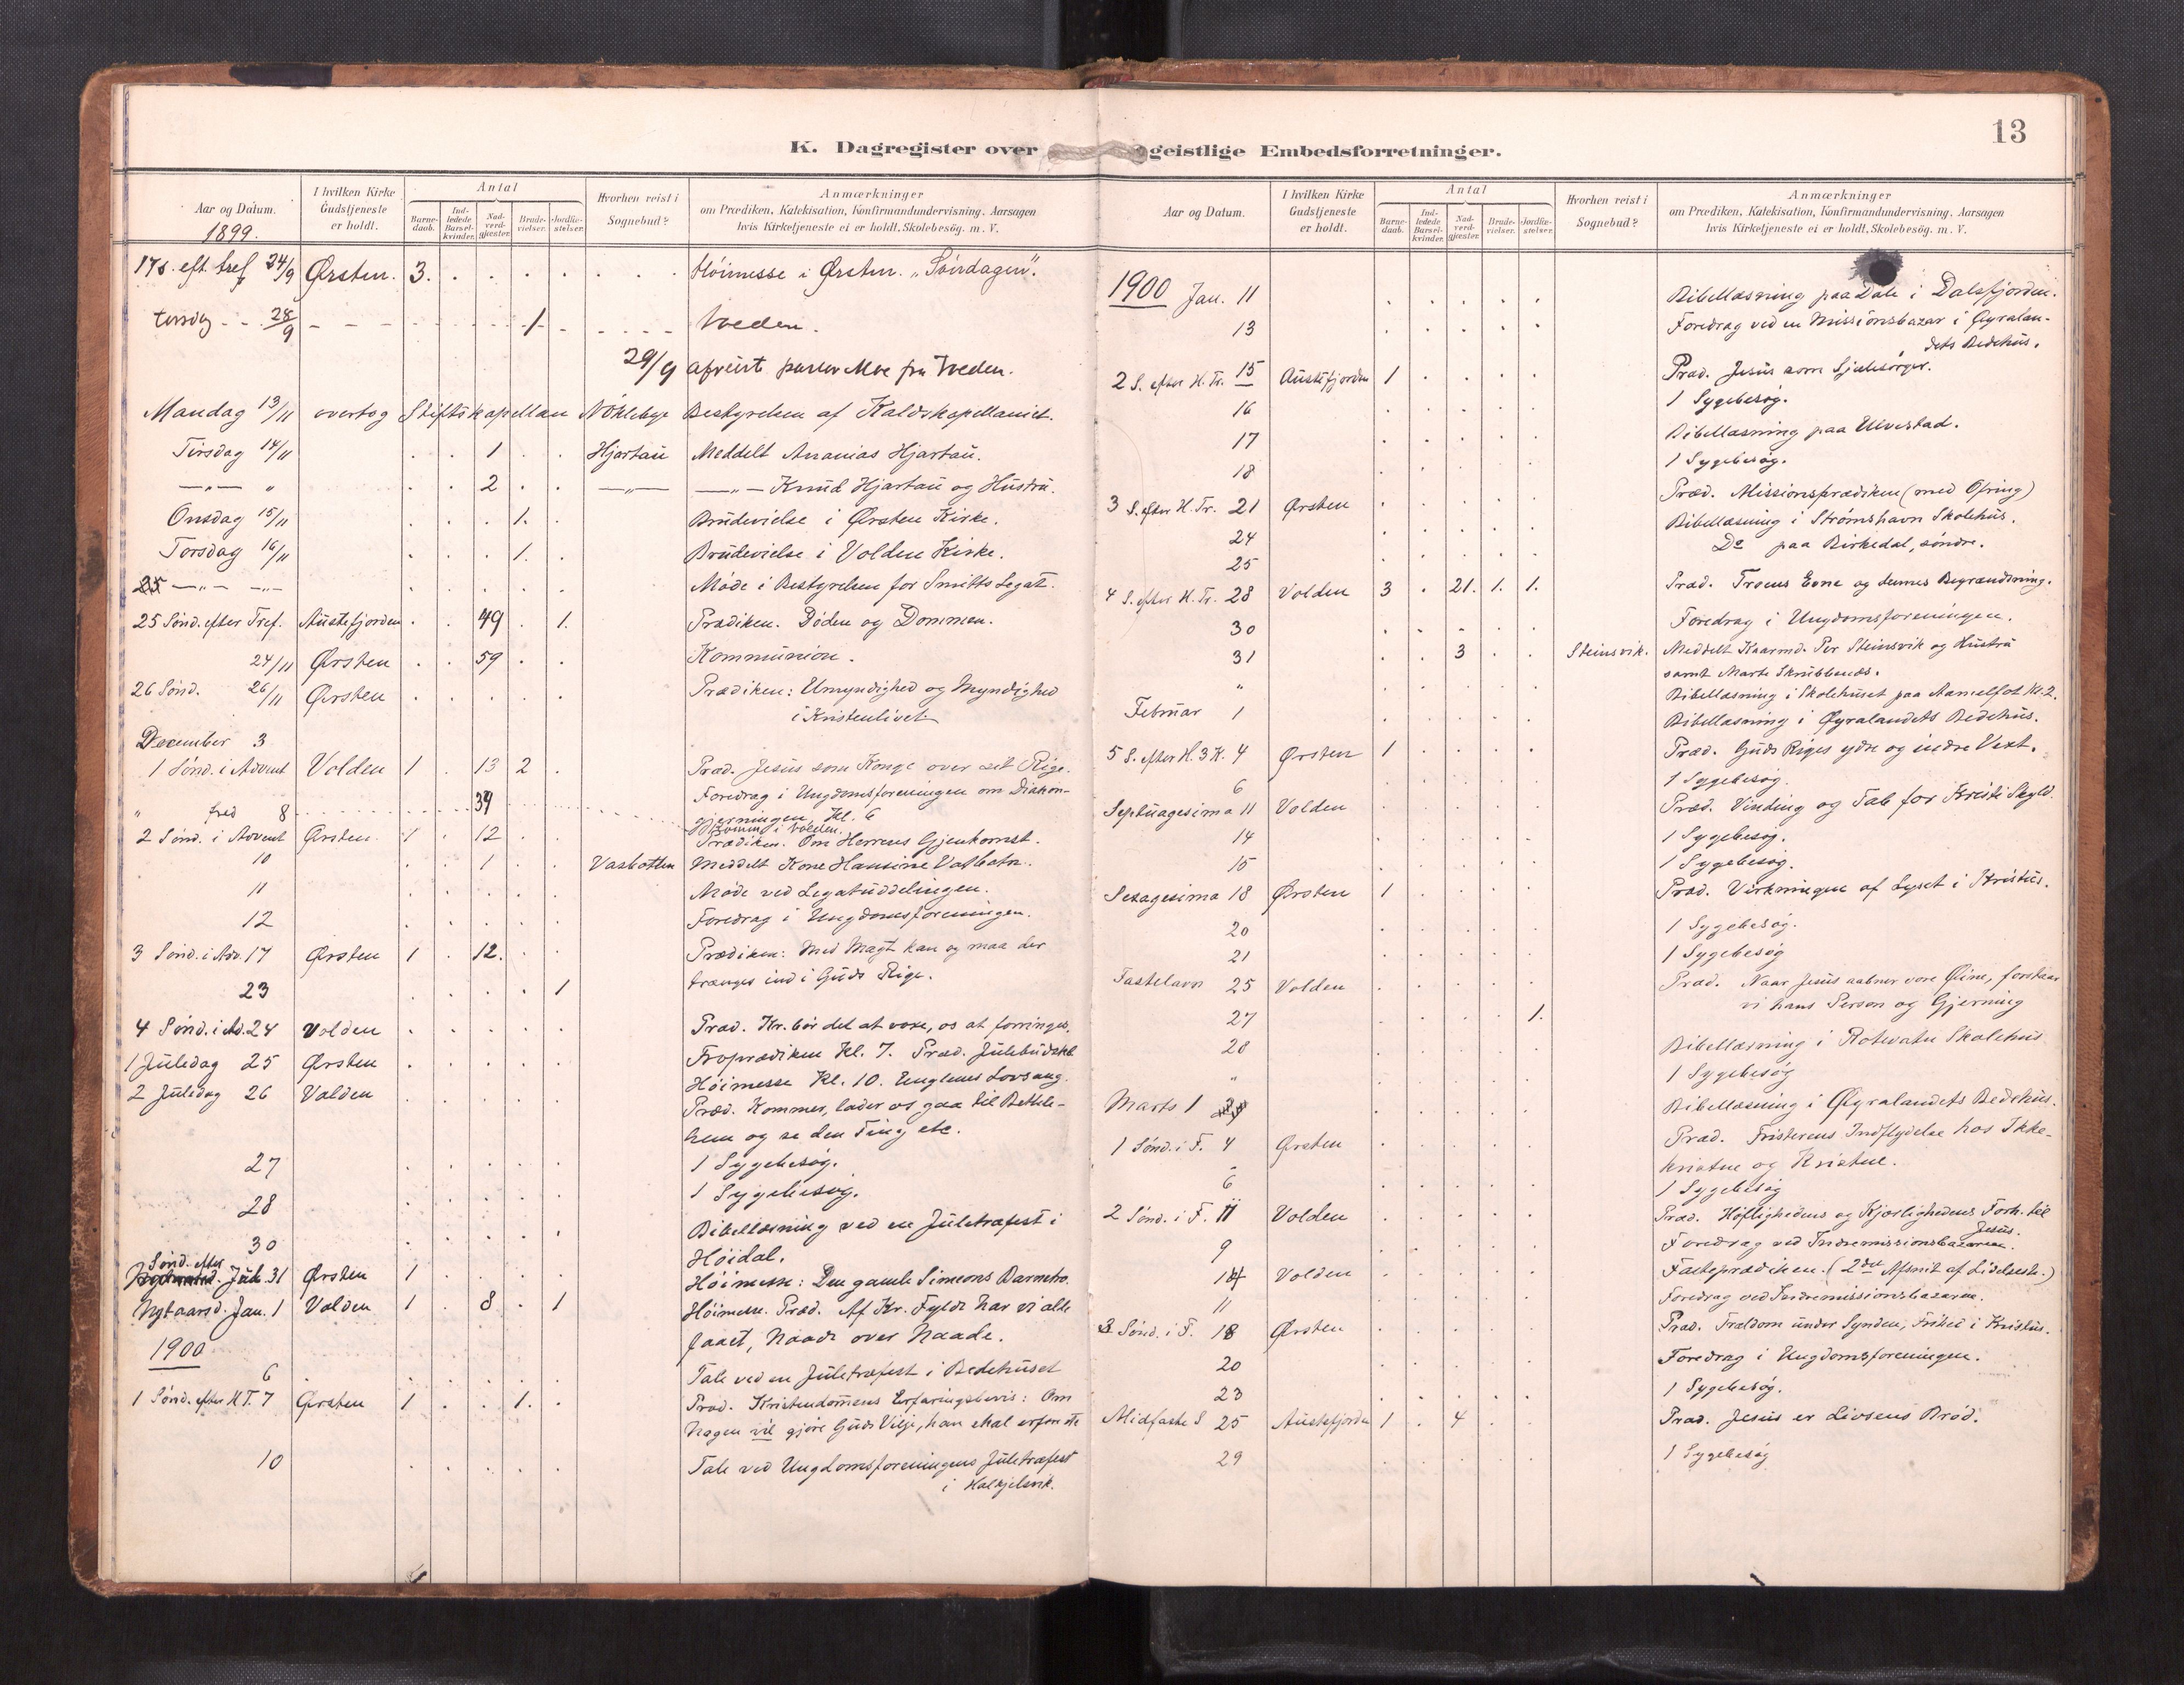 13
K. Dagregister over geistlige Embedsforretninger.
Aar og Datum. 1899.
I hvilken Kirke Gudstjeneste er holdt.
Antal
Barne-daab.
Ind-ledede Barsel-kvinder.
Nad-verd-gjester.
Brude-vielser.
Jordfæ-stelser.
Hvorhen reist i Sognebud?
Anmærkninger
om Prædiken, Katekisation, Konfirmandundervisning. Aarsagen
hvis Kirketjeneste ei er holdt, Skolebesög. m. V.
17s. eft. tref 24/9 Ørsten. 3. . . . . . Höimesse i Ørsten. "Söndagen".
torsdg 28/9 1 Voeden.
29/9 afreist pastor Moe fra Voeden.
Mandag 13/11 overtog Stiftskapellan Nöklebye Bestyrelsen af Kaldskapellaniet.
Tirsdag 14/11 . . 1 . . Hjartau Meddelt Ananias Hjartau.
—„— „ . . 2 . . —„— —„— Knud Hjartau og Hustru.
Onsdag 15/11 . . . 1. . Brudevielse i Ørsten Kirke.
Torsdag 16/11 . . . 1. . Brudevielse i Volden Kirke.
—„— —„— . . . . . Möde i Bestyrelsen for Smitts Legat.
25 Sönd. efter Tref. Austefjorden . . 49 . 1. Prædiken. Döden og Dommen.
24/11 Ørsten . . 59 . . Kommunion.
26 Sönd. 26/11 Ørsten . . . . . Prædiken: Umyndighed og Myndighed
i Kristenlivet
December 3
1 Sönd. i Advent Volden 1 . 13 2 . Præd. Jesus som Konge over sit Rige.
Foredrag i Ungdomsforeningen om Diakon-
gjerningen Kl. 6
„ fred 8 39 Komm. i Volden.
2 Sönd. i Advent Ørsten 1 . 12 . . Prædiken. Om Herrens Gjenkomst.
10 . . 1 . . Vasbotten Meddelt Kone Hansine Vatbotn.
11 . . . . . Möde ved Legatuddelingen.
12 . . . . . Foredrag i Ungdomsforeningen.
3 Sönd. i Adv. 17 Ørsten 1 . 12. . . Prædiken: Med Magt kan og maa der
trænges ind i Guds Rige.
23 . . . . 1
4 Sönd. i Ad. 24 Volden . . . . . Præd. Kr. bör det at voxe, os at forringes.
1 Juledag 25 Ørsten . . . . . Froprædiken Kl. 7. Præd. Julebudskb
Höimesse Kl. 10. Englenes Lovsang.
2 Juledag 26 Volden Præd. Kommer, lader os gaa til Bethle-
hem og se den Ting etc.
27 . . . . . 1 Sygebesög.
28 . . . . . 1 Sygebesög.
30 . . . . . Bibellæsning ved en Juletræfest i
Höidal.
Sönd. efter Jul. 31 Ørsten 1 . . . . Höimesse: Den gamle Simeons Barnetro.
Nytaarsd. Jan. 1 Volden 1 . 8 . 1 Höimesse. Præd. Af Kr. Fylde har vi alle
faaet, Naade over Naade.
1900
6 . . . . . Tale ved en Juletræfest i Bedehuset
1 Sönd. efter HT. 7 Ørsten 1 . . 1. . Præd. Kristendommens Erfaringsbevis: Om
Nogen vil gjöre Guds Vilje, han skal erfare etc
10 . . . . . Tale ved Ungdomsforeningens Juletræfest
i Halkjelsvik.
Aar og Datum.
I hvilken Kirke Gudstjeneste er holdt.
Antal
Barne-daab.
Ind-ledede Barsel-kvinder.
Nad-verd-gjester.
Brude-vielser.
Jordfæ-stelser.
Hvorhen reist i Sognebud?
Anmærkninger
om Prædiken, Katekisation, Konfirmandundervisning. Aarsagen
hvis Kirketjeneste ei er holdt, Skolebesög. m. V.
1900 Jan. 11 . . . . . Bibellæsning paa Dale i Dalsfjorden.
13 . . . . . Foredrag ved en Missionsbazar i Øyralan-
dets Bedehus.
2 S. efter H. Tr. 15 Austefjorden 1 . . . . Præd. Jesus som Sjælesörger.
16 . . . . . 1 Sygebesög.
17 . . . . . Bibellæsning paa Ulvestad.
18 . . . . . 1 Sygebesög.
3 S. efter H. Tr. 21 Ørsten . . . . . Præd. Missionsprædiken (med Ofring)
24 . . . . . Bibellæsning i Strömshavn Skolehus.
25 . . . . . Do paa Birkedal, söndre.
4 S. efter H. Tr. 28 Volden 3 . 21. 1. 1. Præd. Troens Evne og dennes Begrændsning.
30 . . . . . Foredrag i Ungdomsforeningen.
31 . . 3 . . Steinsvik. Meddelt Kaarmd. Per Steinsvik og Hustru
samt Marte Skrubbenes.
„ . . . . . Bibellæsning i Skolehuset paa Aamelfot Kl. 2.
Februar 1 . . . . . Bibellæsning i Øyralandets Bedehus.
5 S. efter H. 3 K. 4 Ørsten 1 . . . . Præd. Guds Riges ydre og indre Vext.
6 . . . . . 1 Sygebesög.
Septuagesima 11 Volden . . . . . Præd. Vinding og Tab for Kristi Skyld.
14 . . . . . 1 Sygebesög.
15 . . . . . 1 Sygebesög.
Sexagesima 18 Ørsten 1 . . . . Præd. Virkningen af Lyset i Kristus.
20 . . . . . 1 Sygebesög.
21 . . . . . 1 Sygebesög
Fastelavn 25 Volden . . . . . Præd. Naar Jesus aabner vore Öine, forstaar
vi hans Person og Gjerning
27 . . . . 1.
28 . . . . . Bibellæsning i Rotevatn Skolehus
„ . . . . . 1 Sygebesög
Marts 1 . . . . . Bibellæsning i Øyralandets Bedehus.
1 Sönd. i F. 4 Ørsten . . . . . Præd. Fristerens Indflydelse hos Ikke-
kristne og Kristne.
6 . . . . . 1 Sygebesög
2 Sönd. i F. 11 Volden . . . . . Præd. Höflighedens og Kjærlighedens Forh. til
Jesus.
9 . . . . . Foredrag ved Indremissionsbazaren.
14 Volden . . . . . Fasteprædiken. (2den Afsnit af Lidelsesh.)
11 . . . . . Foredrag ved Indremissionsbazaren.
3 Sönd. i F. 18 Ørsten . . . . . Præd. Trældom under Synden, Frihed i Kristus.
20 . . . . . Foredrag i Ungdomsforeningen.
23 . . . . . 1 Sygebesög.
Midfaste S 25 Austefjorden 1 . 4 . . Præd. Jesus er Livsens Bröd.
29 . . . . . 1 Sygebesög